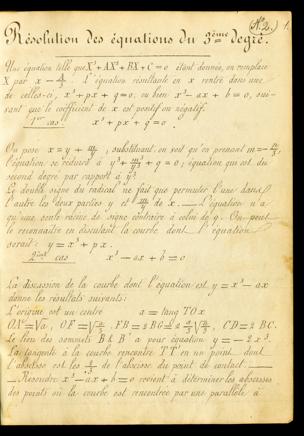 (No 2.) 1.
Résolution des équations du 3ème degré.
Une équation telle que X³ + AX² + BX + C = 0 étant donnée, on remplace
X par x - A/3. L'équation résultante en x rentre dans une
de celles-ci, x³ + px + q = 0, ou bien x³ - ax + b = 0, sui-
vant que le coefficient de x est positif ou négatif.
1er cas x³ + px + q = 0.
On pose x = y + m/y, substituant, on voit qu'en prenant m = - p/3,
l'équation se réduira à y³ + m³/y³ + q = 0; équation qui est du
second degré par rapport à y³.
Le double signe du radical ne fait que permuter l'une dans
l'autre les deux parties y et m/y de x. — L'équation n'a
qu'une seule racine de signe contraire à celui de q. On peut
le reconnaître en discutant la courbe dont l'équation
serait: y = x³ + px.
2ème cas x³ - ax + b = 0
La discussion de la courbe dont l'équation est y = x³ - ax
donne les résultats suivants:
L'origine est un centre a = tang TOx
OA = √a, OF = , FB = 2 BG = , CD = 2 BC.
Le lieu des sommets B & B' a pour équation y = - 2x³.
La tangente à la courbe rencontre TT' en un point dont
l'abscisse est les de l'abscisse du point de contact.
Résoudre x³ - ax + b = 0 revient à déterminer les abscisses
des points où la courbe est rencontrée par une parallèle à